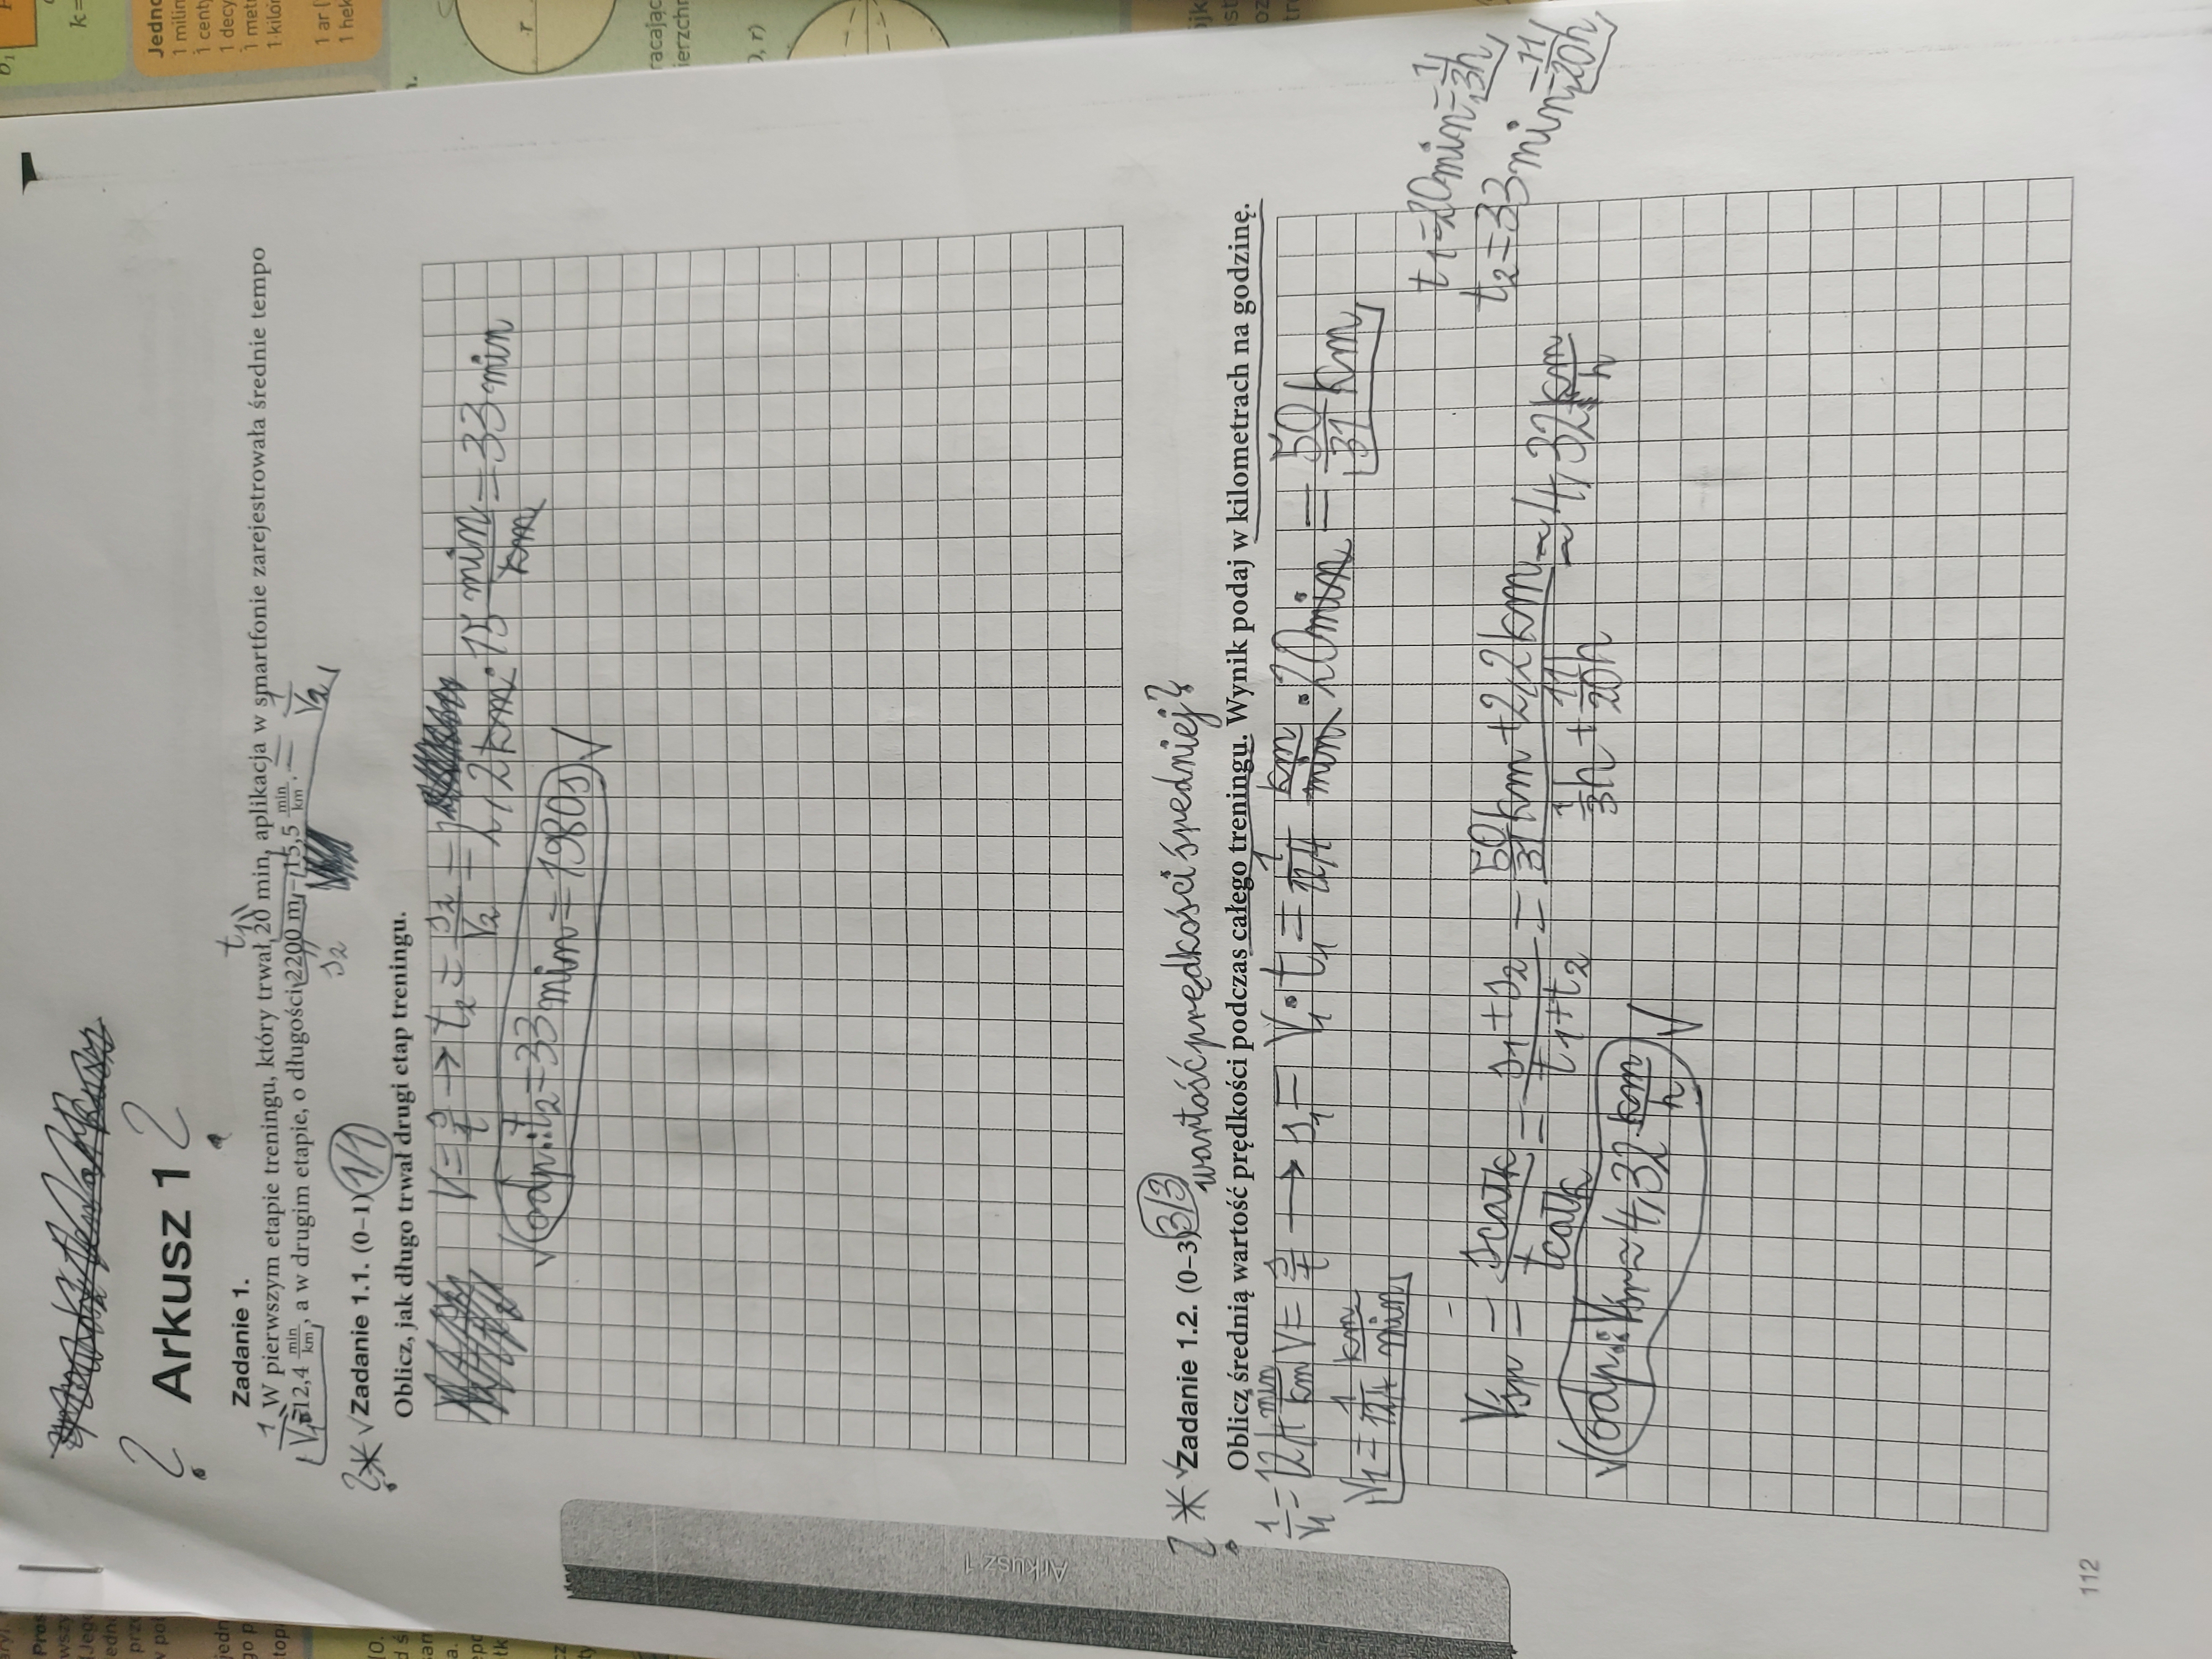 Arkusz 1
Zadanie 1.
W pierwszym etapie treningu, który trwał 20 min, aplikacja w smartfonie zarejestrowała średnie tempo
12,4 min/km, a w drugim etapie, o długości 2200 m – 15,5 min/km.
t₁
1/V₁ =
s₂
= 1/V₂
? * √ Zadanie 1.1. (0–1) 1/1
Oblicz, jak długo trwał drugi etap treningu.
V = s/t → t₂ = s₂/V₂ =
= 2,2 km · 15 min/km = 33 min
√ odp.: t₂ = 33 min = 1980 s √
? * √ Zadanie 1.2. (0–3) 3/3
wartość prędkości średniej?
Oblicz średnią wartość prędkości podczas całego treningu. Wynik podaj w kilometrach na godzinę.
1/V₁ = 12,4 min/km V = s/t → s₁ = V₁ · t₁ = 1/12,4 km/min · 20 min = 50/31 km
V₁ = 1/12,4 km/min
t₁ = 20 min = 1/3 h
t₂ = 33 min = 11/20 h
Vśr = scałk/tcałk = s₁ + s₂/t₁ + t₂ = 50/31 km + 2,2 km/1/3 h + 11/20 h ≈ 4,32 km/h
√ odp.: Vśr ≈ 4,32 km/h √
Arkusz 1
112